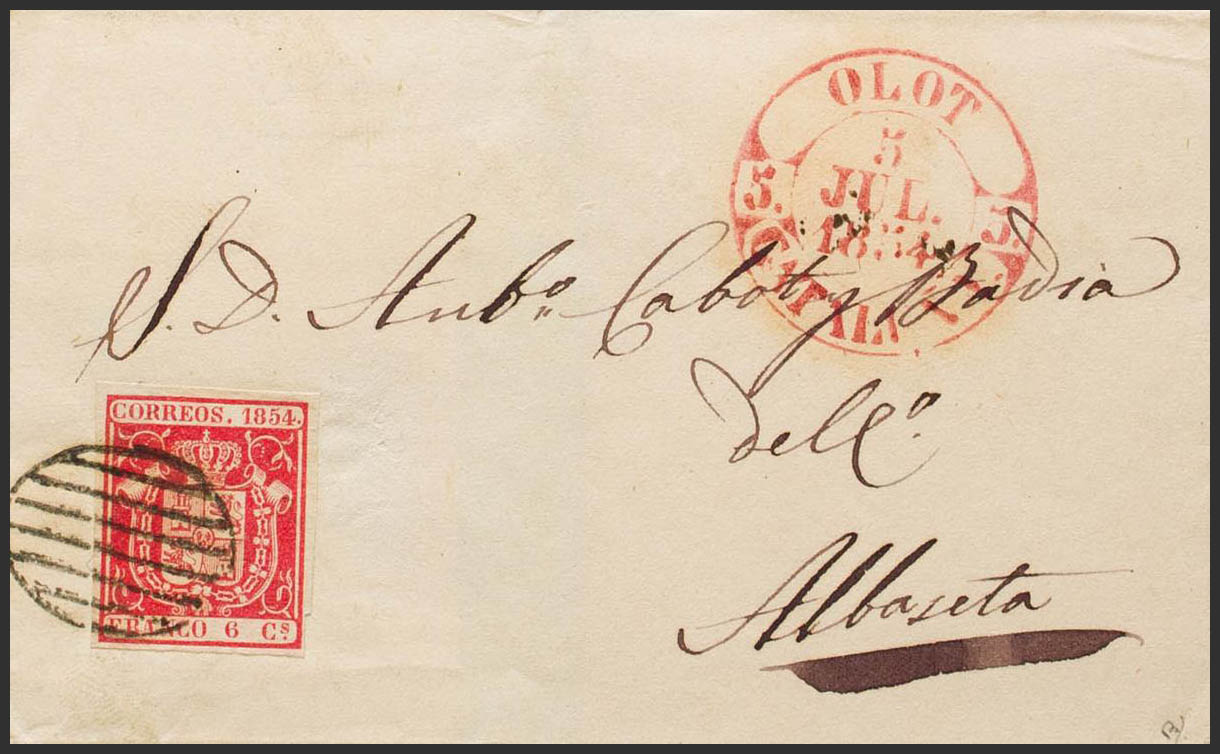 OLOT
5
JUL.
1854
5. 5.
S. D. Antº Cabot y Badia
del Cº
Albaseta
CORREOS. 1854.
FRANCO 6 Cs